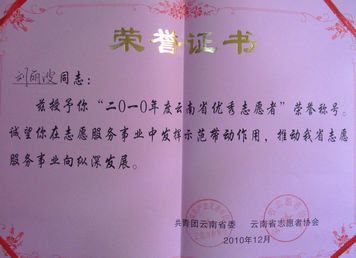 荣誉证书
刘丽波同志：
兹授予你“二〇一〇年度云南省优秀志愿者”荣誉称号。
诚望你在志愿服务事业中发挥示范带动作用，推动我省志愿
服务事业向纵深发展。
共青团云南省委 云南省志愿者协会
2010年12月